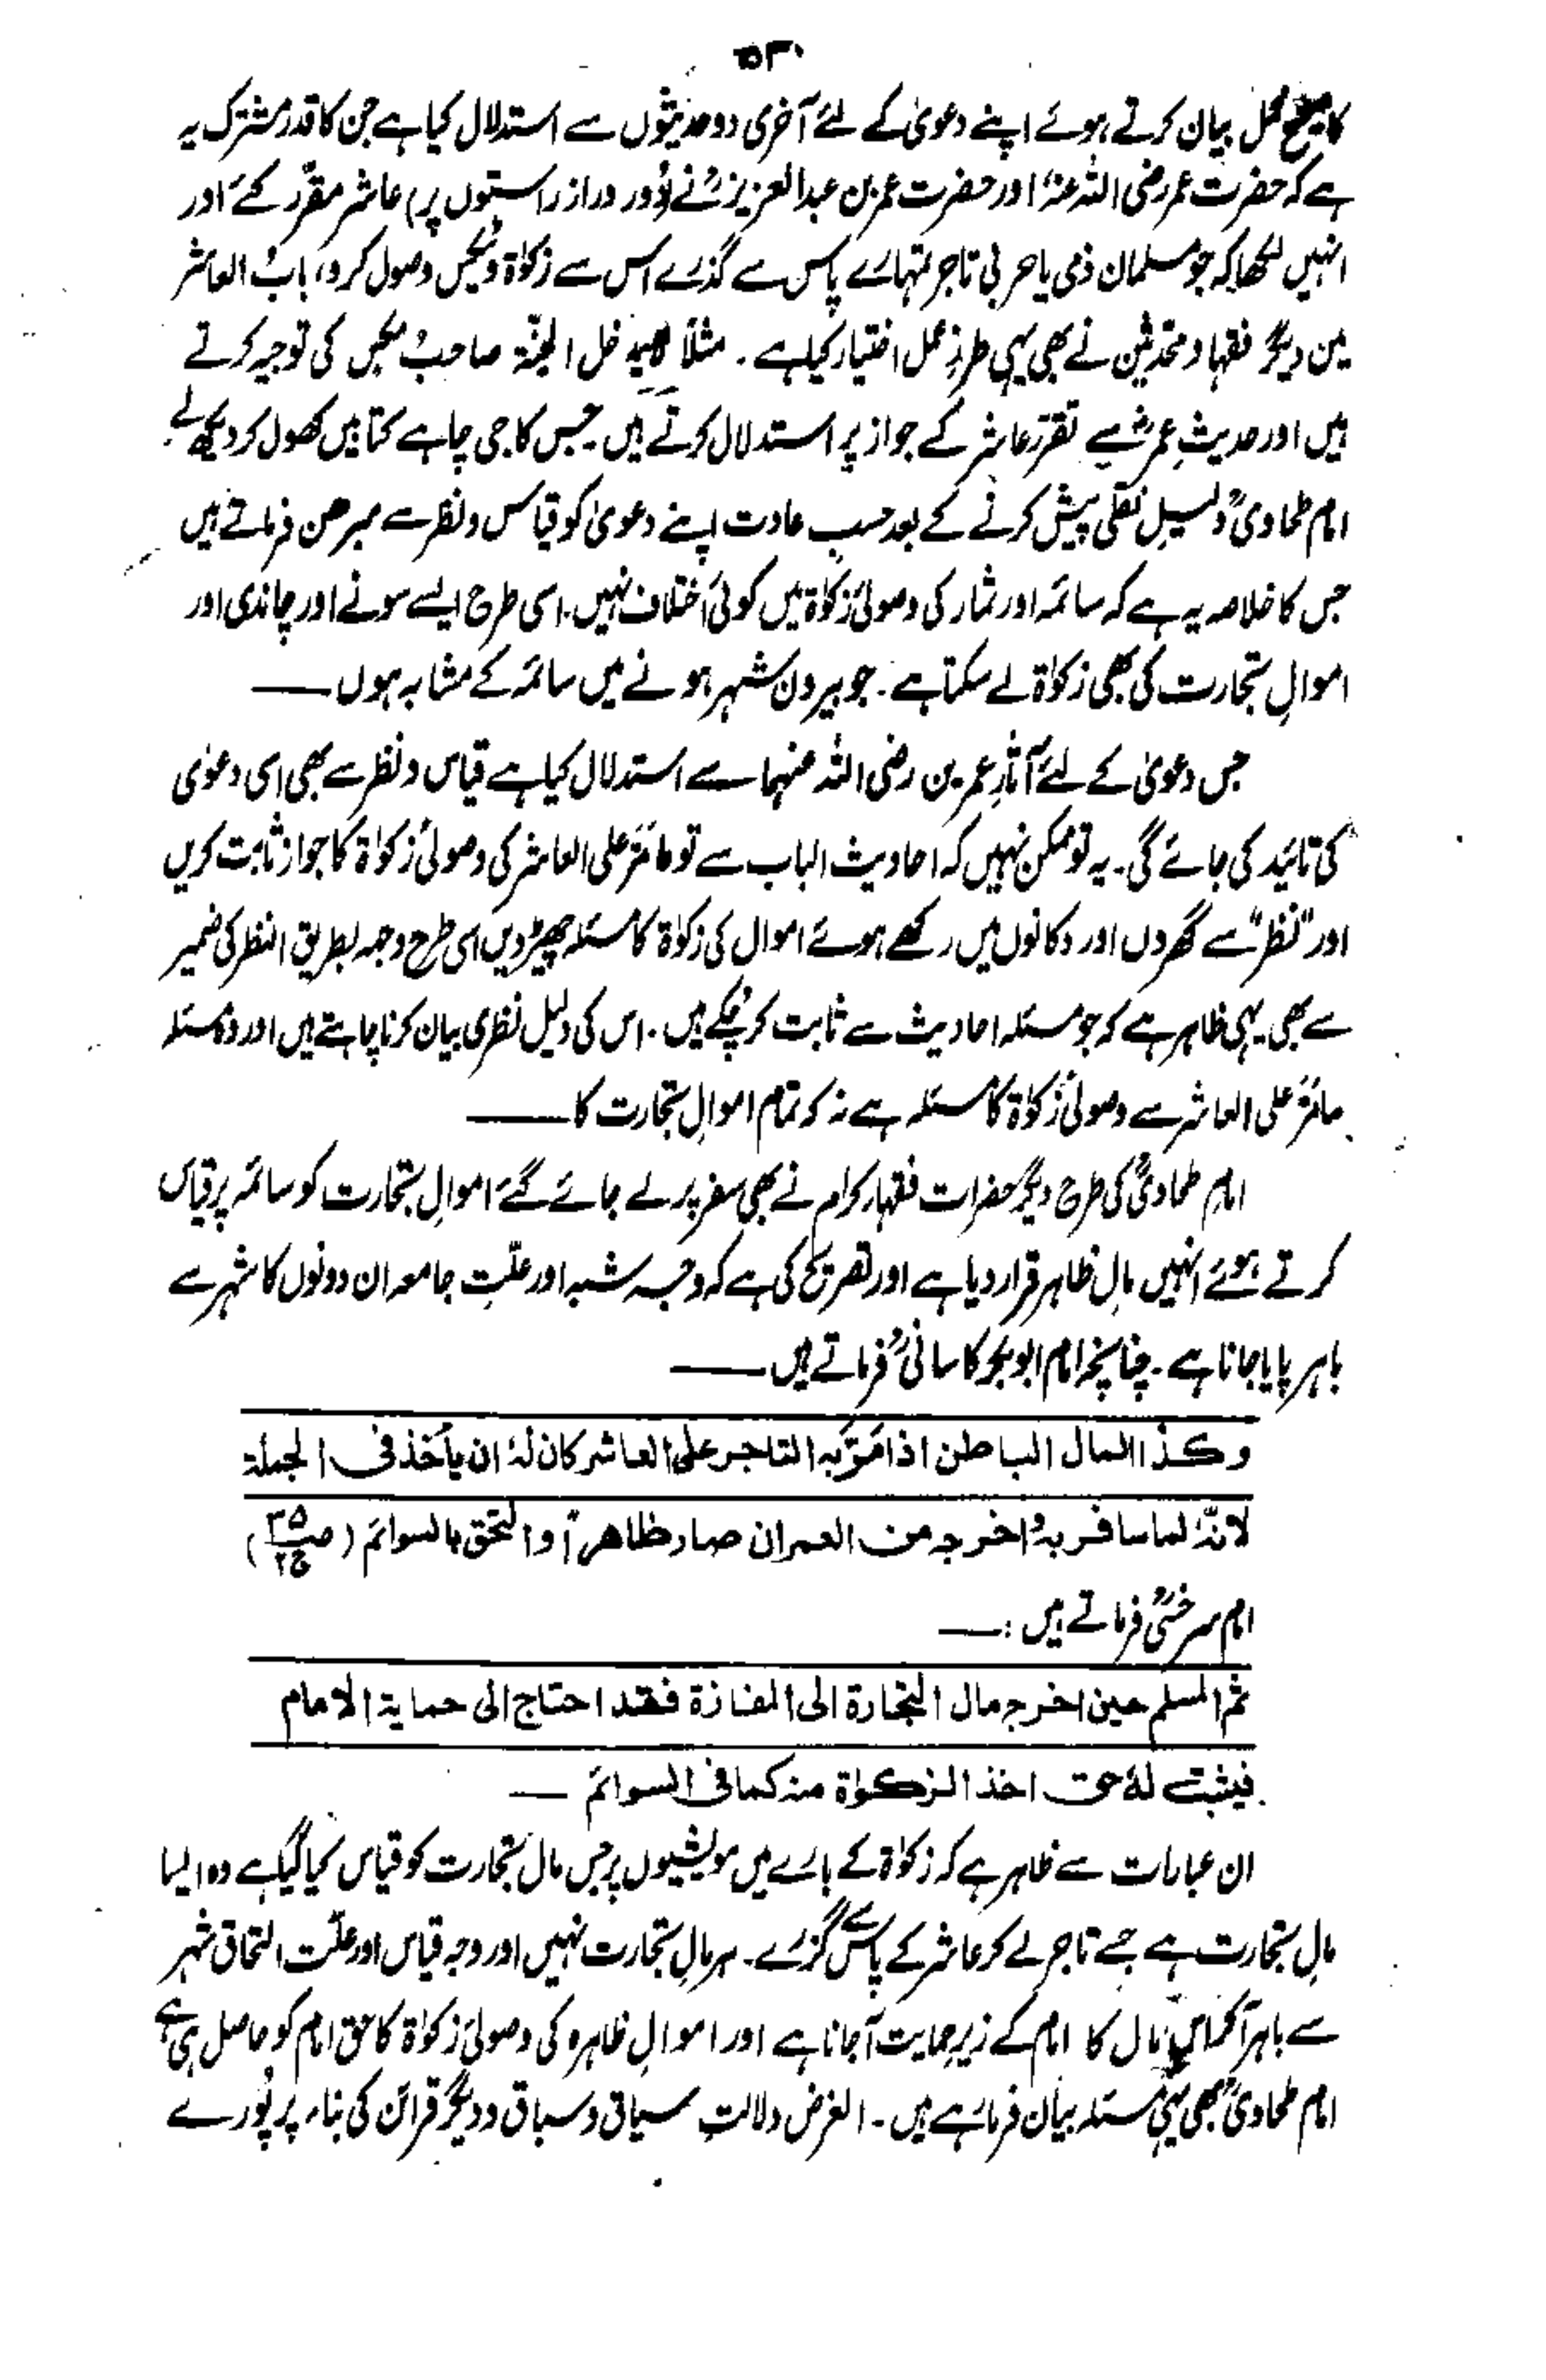 ۵۳۰
کا صحیح محمل بیان کرتے ہوئے اپنے دعویٰ کے لئے آخری دو حدیثوں سے استدلال کیا ہے جن کا قدر مشترک یہ
ہے کہ حضرت عمر رضی اللہ عنہٗ اور حضرت عمر بن عبد العزیزؒ نے (دور دراز راستوں پر) عاشر مقرّر کئے اور
انہیں لکھا کہ جو مسلمان ذمی یا حربی تاجر تمہارے پاس سے گذرے اس سے زکوٰۃ و مکس وصول کرو، بابُ العاشر
میں دیگر فقہا و محدثین نے بھی یہی طرزِ عمل اختیار کیا ہے ۔ مثلاً لا یدخل الجنّۃ صاحبُ مکسٍ کی توجیہ کرتے
ہیں اور حدیثِ عمرؓ سے تقررِ عاشر کے جواز پر استدلال کرتے ہیں جس کا جی چاہے کتابیں کھول کر دیکھ لے
امام طحاویؒ دلیلِ نقلی پیش کرنے کے بعد حسبِ عادت اپنے دعویٰ کو قیاس و نظر سے مبرھن فرماتے ہیں
جس کا خلاصہ یہ ہے کہ سائمہ اور ثمار کی وصولیٔ زکوٰۃ میں کوئی اختلاف نہیں۔ اسی طرح ایسے سونے اور چاندی اور
اموالِ تجارت کی بھی زکوٰۃ لے سکتا ہے ۔ جو بیرونِ شہر ہونے میں سائمہ کے مشابہ ہوں ــــ
جس دعویٰ کے لئے آثارِ عمرین رضی اللہ عنہما سے استدلال کیا ہے قیاس و نظر سے بھی اسی دعویٰ
کی تائید کی جائے گی۔ یہ تو ممکن نہیں کہ احادیث الباب سے تو مامرّ علی العاشر کی وصولیٔ زکوٰۃ کا جواز ثابت کریں
اور ”نظر“ سے گھروں اور دکانوں میں رکھے ہوئے اموال کی زکوٰۃ کا مسئلہ چھیڑ دیں اسی طرح وجہ بطریق النظر کی ضمیر
سے بھی یہی ظاہر ہے کہ جو مسئلہ احادیث سے ثابت کر چکے ہیں ۔ اس کی دلیل نظری بیان کرنا چاہتے ہیں اور وہ مسئلہ
مامرّ علی العاشر سے وصولیٔ زکوٰۃ کا مسئلہ ہے نہ کہ تمام اموالِ تجارت کا ــــ
امام طحاویؒ کی طرح دیگر حضرات فقہاء کرام نے بھی سفر پر لے جائے گئے اموالِ تجارت کو سائمہ پر قیاس
کرتے ہوئے انہیں مالِ ظاہر قرار دیا ہے اور تصریح کی ہے کہ وجہ شبہ اور علّتِ جامعہ ان دونوں کا شہر سے
باہر پایا جانا ہے ۔ چنانچہ امام ابوبکر کاسانیؒ فرماتے ہیں ــــ
وکذا المال الباطن اذا مَرّ بہ التاجر علی العاشر کان لہٗ ان یأخذ فی الجملۃ
لانّہٗ لما سافر بہٖ و اخرجہ من العمران صار ظاھراً و التحق بالسوائم (ص۳۵ ج۲)
امام سرخسیؒ فرماتے ہیں :ــــ
ثم المسلم حین اخرج مال التجارۃ الی المفازۃ فقد احتاج الی حمایۃ الامام
فیثبت لہٗ حق اخذ الزکوٰۃ منہ کما فی السوائم ــــ
ان عبارات سے ظاہر ہے کہ زکوٰۃ کے بارے میں مویشیوں پر جس مال تجارت کو قیاس کیا گیا ہے وہ ایسا
مالِ تجارت ہے جسے تاجر لے کر عاشر کے پاس سے گزرے ۔ ہر مالِ تجارت نہیں اور وجہ قیاس اور علّت التحاق شہر
سے باہر آکر اس مال کا امام کے زیرِ حمایت آجانا ہے اور اموالِ ظاہرہ کی وصولیٔ زکوٰۃ کا حق امام کو حاصل ہی ہے
امام طحاویؒ بھی یہی مسئلہ بیان فرما رہے ہیں ۔ الغرض دلالتِ سیاق و سباق و دیگر قرائن کی بناء پر پورے